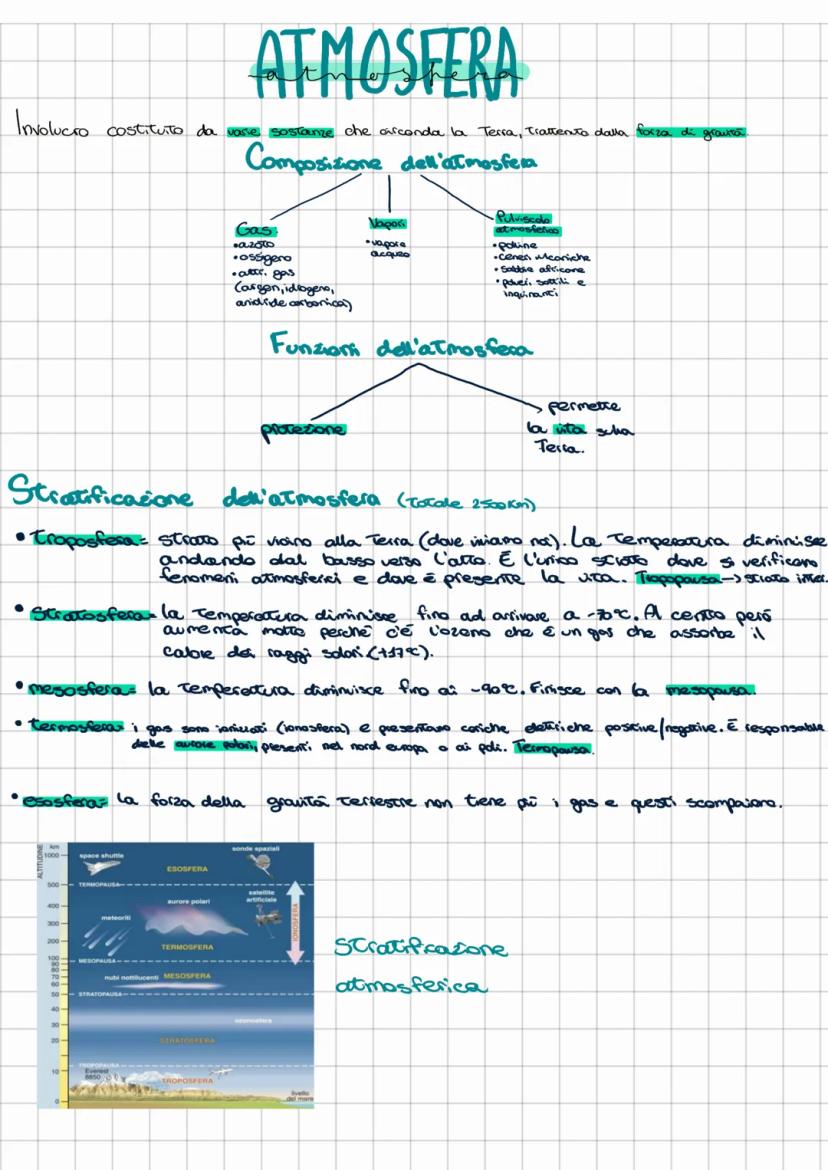 ATMOSFERA
atmosfera
Involucro costituito da varie sostanze che circonda la Terra, trattenuto dalla forza di gravità.
Composizione dell'atmosfera
Gas:
•azoto
•ossigeno
•altri gas
(argon, idrogeno,
anidride carbonica)
Vapori
•vapore
acqueo
Pulviscolo
atmosferico
•polline
•ceneri vulcaniche
•sabbie africane
•polveri sottili e
inquinanti
Funzioni dell'atmosfera
protezione
permette
la vita sulla
Terra.
Stratificazione dell'atmosfera (Totale 2500km)
•troposfera= strato più vicino alla Terra (dove viviamo noi). La temperatura diminuisce
andando dal basso verso l'alto. È l'unico strato dove si verificano
fenomeni atmosferici e dove è presente la vita. Tropopausa→strato inter.
•stratosfera= la temperatura diminuisce fino ad arrivare a -70°C. Al centro però
aumenta molto perché c'è l'ozono che è un gas che assorbe il
calore dei raggi solari (+17°C).
•mesosfera= la temperatura diminuisce fino ai -90°C. Finisce con la mesopausa.
•termosfera= i gas sono ionizzati (ionosfera) e presentano cariche elettriche positive/negative. È responsabile
delle aurore polari, presenti nel nord europa o ai poli. Termopausa.
•esosfera= la forza della gravità terrestre non tiene più i gas e questi scompaiono.
ALTITUDINE
km
1000
space shuttle
sonde spaziali
ESOSFERA
500
TERMOPAUSA
400
aurore polari
satellite
artificiale
300
meteoriti
IONOSFERA
200
TERMOSFERA
100
MESOPAUSA
90
80
70
nubi nottilucenti
MESOSFERA
60
50
STRATOPAUSA
40
30
ozonosfera
20
STRATOSFERA
TROPOPAUSA
10
Everest
8850
TROPOSFERA
livello
del mare
0
Stratificazione
atmosferica